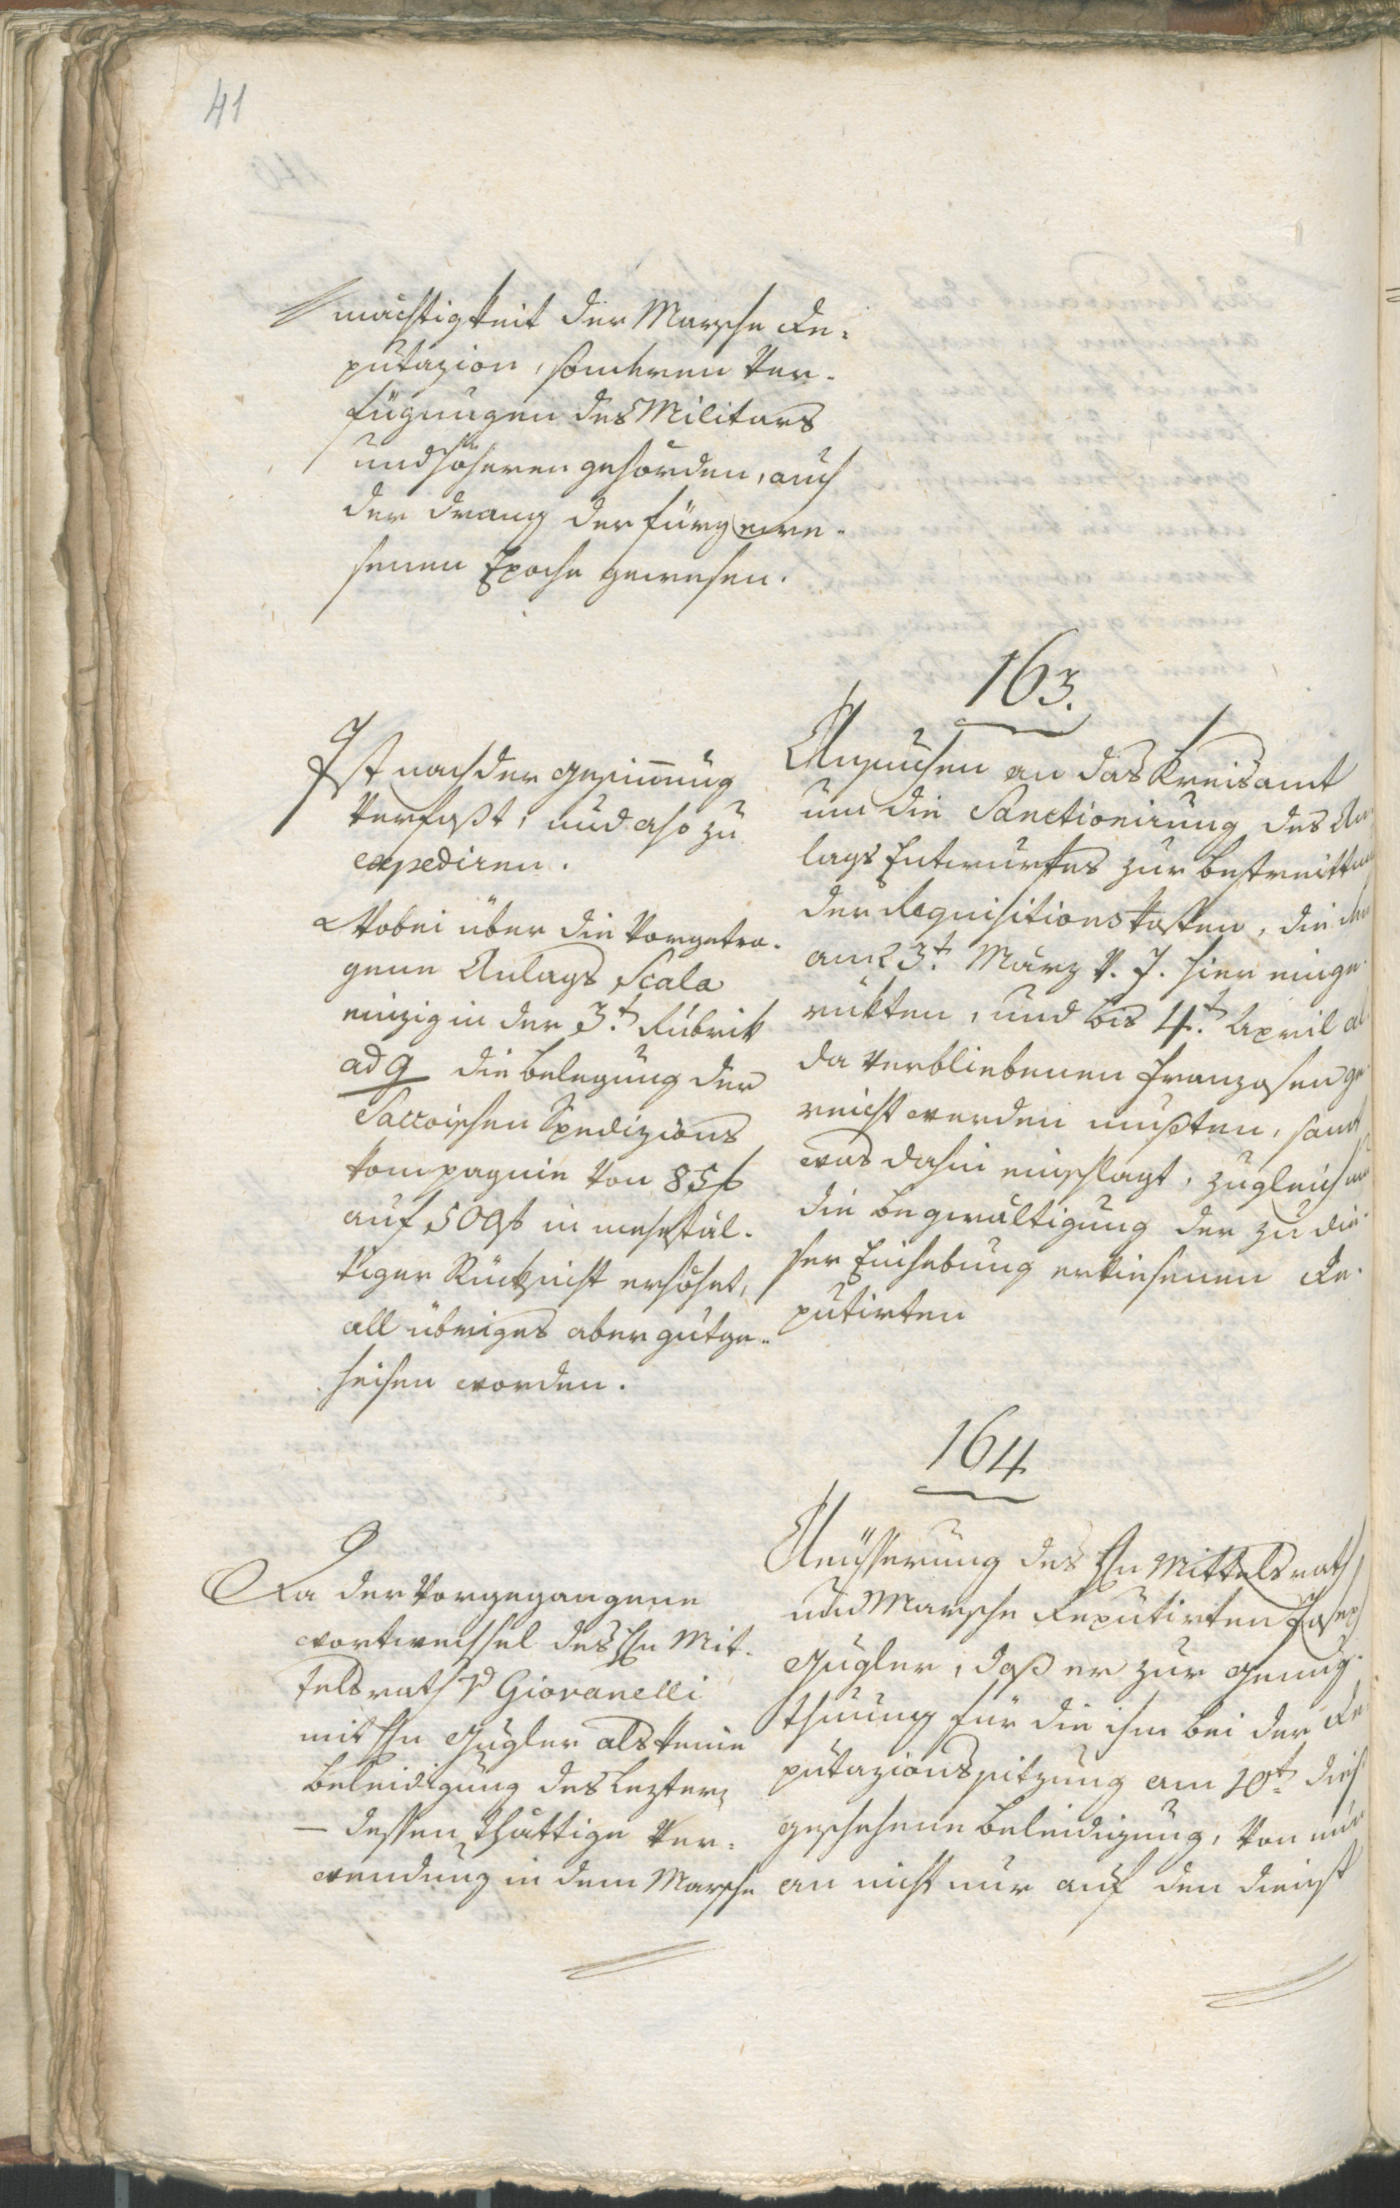 41
mächtigkeit der Marsche De-
putazion, sondern Ver-
fügungen des Militars
und höheren gehörden, auch
der drang der fürgewe-
senen Epoche gewesen.
163.
Ist nach der gesinnung
Verfaßt, und also zu
expediren.
Wobei über die Vorgetra-
gene Anlags Scala
einzig in der 3.t Rubrik
ad 9 die belegung der
Saccoischen Spedizions
kompagnie von 85f
auf 500f in mehrfäl-
tiger Rücksicht erhöhet,
all übriges aber gutge-
heisen worden.
Ansuchen an das Kreisamt
um die Sanctionirung des An-
lags Entwurfes zur bestreittung
der Requisitionskosten, die den
am 23.t März v. J. hier einge-
rükten, und bis 4.t April al-
da verbliebenen Franzosen ge-
reicht werden mußten, samt
was dahin einschlagt, zugleich um
die begwältigung der zu die-
ser Einhebung erkiesenen De-
putirten
164
Da der Vorgegangene
wortwechsel des Hn Mit-
telsrath v Giovanelli
mit Hn Gugler als keine
beleidigung des Leztern
– dessen thättige Ver-
wendung in dem Marsche
Aeusserung des Hn Mittelsrath
und Marsche Deputirten Joseph
Gugler, daß er zur genug-
thuung für die ihm bei der De-
putazionssitzung am 10t dieß
geschehene beleidigung, von nun
an nicht nur auf den dienst